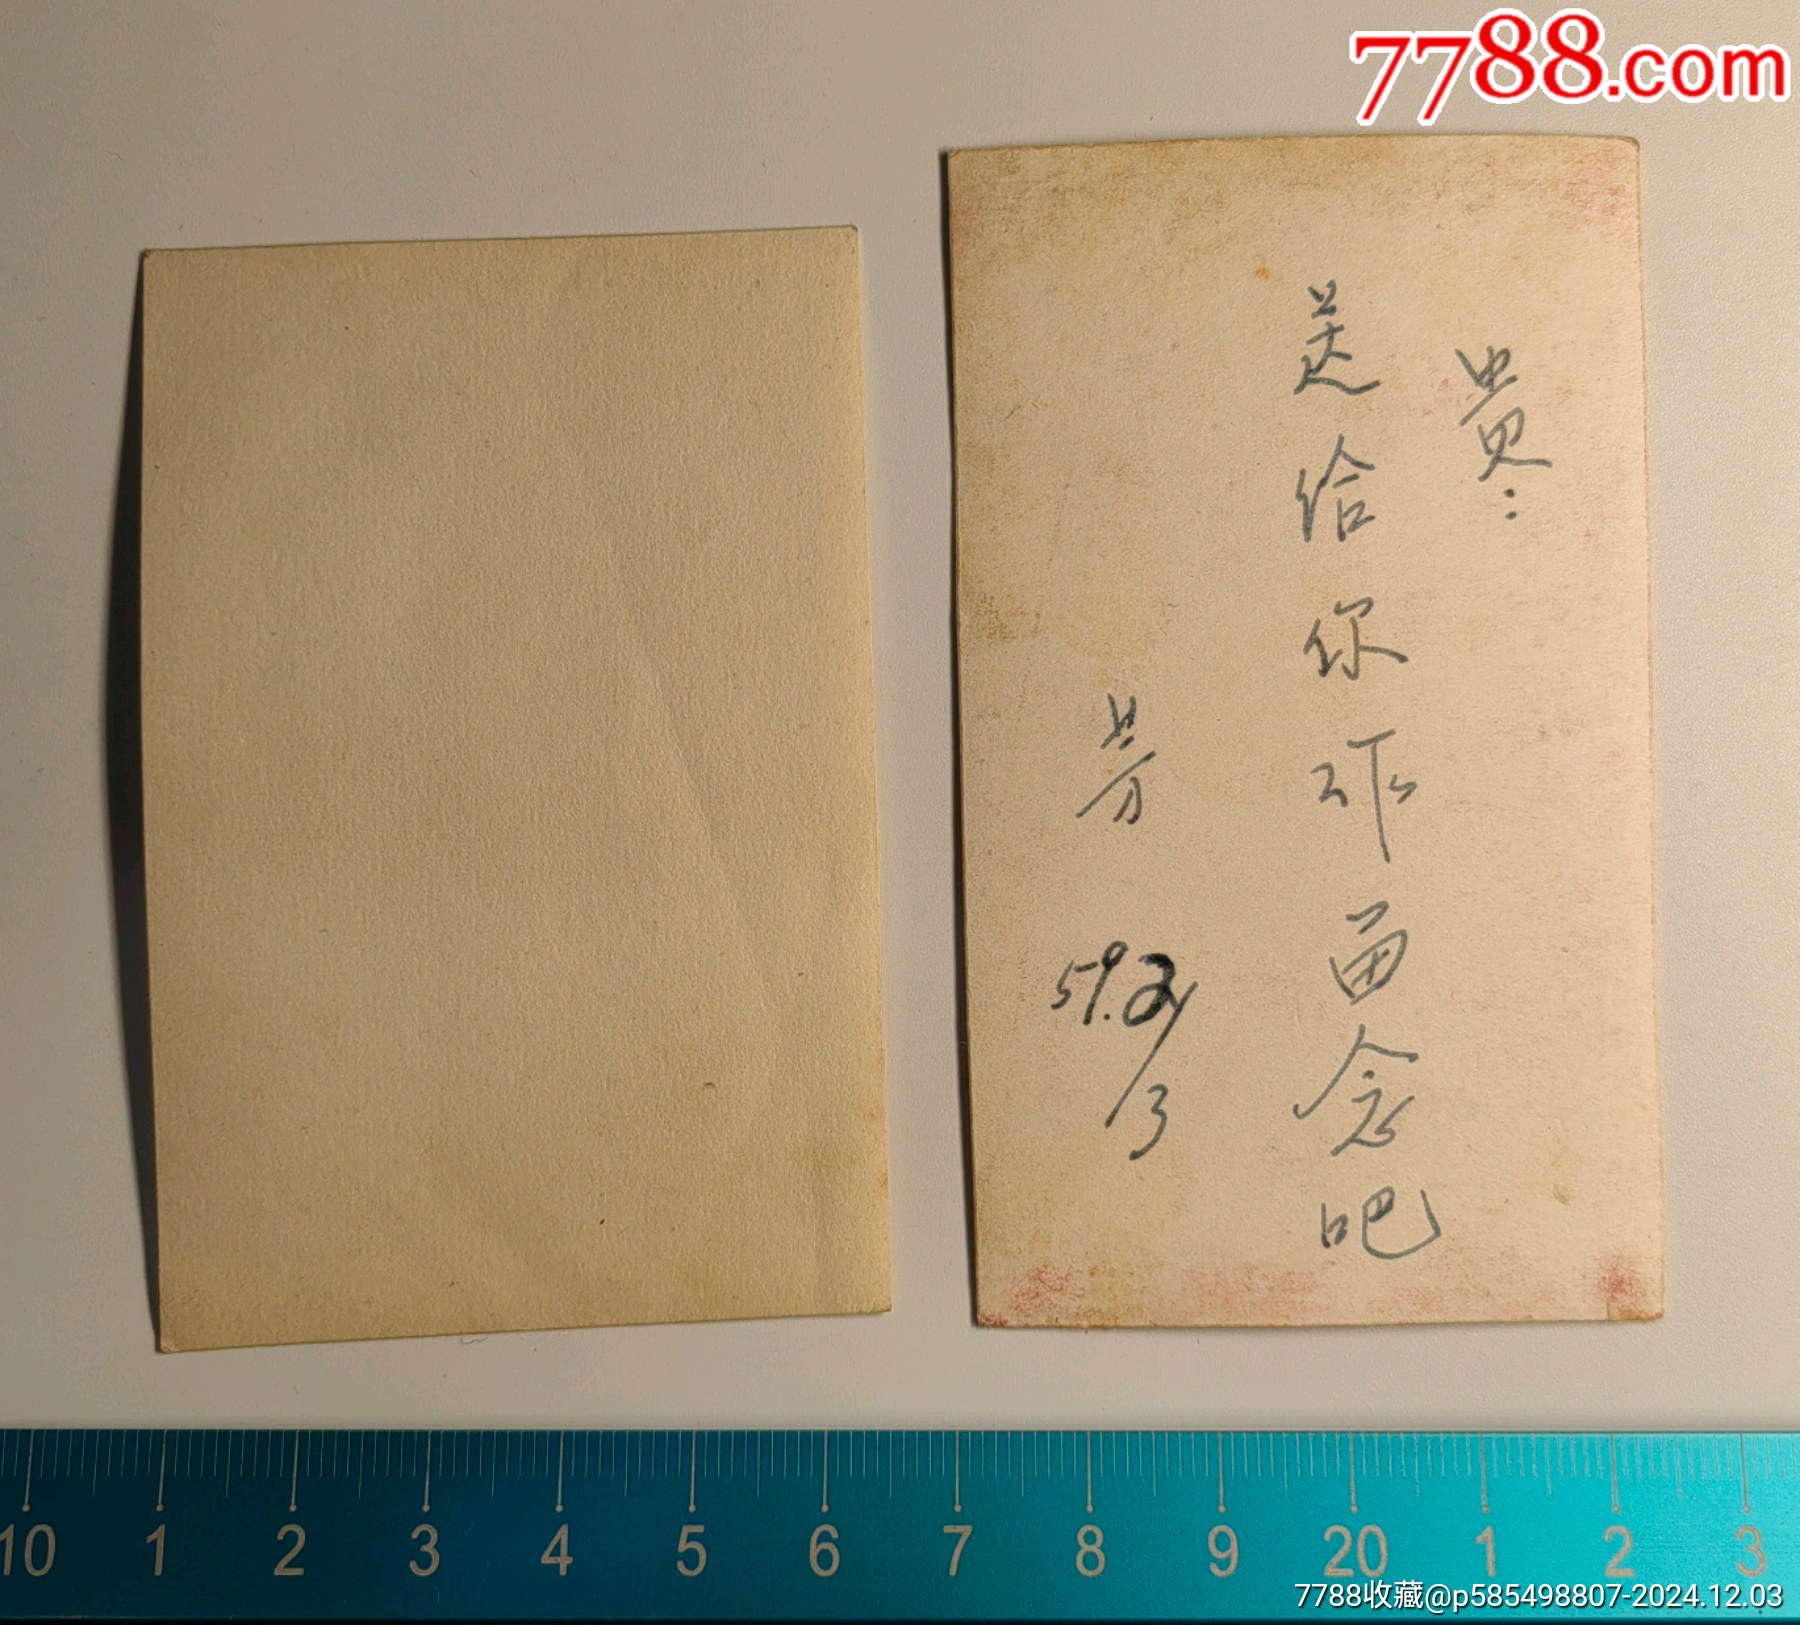 7788.com
贵:
送给你作留念吧
芳
59.2/3
10 1 2 3 4 5 6 7 8 9 20 1 2 3
7788收藏@p585498807-2024.12.03